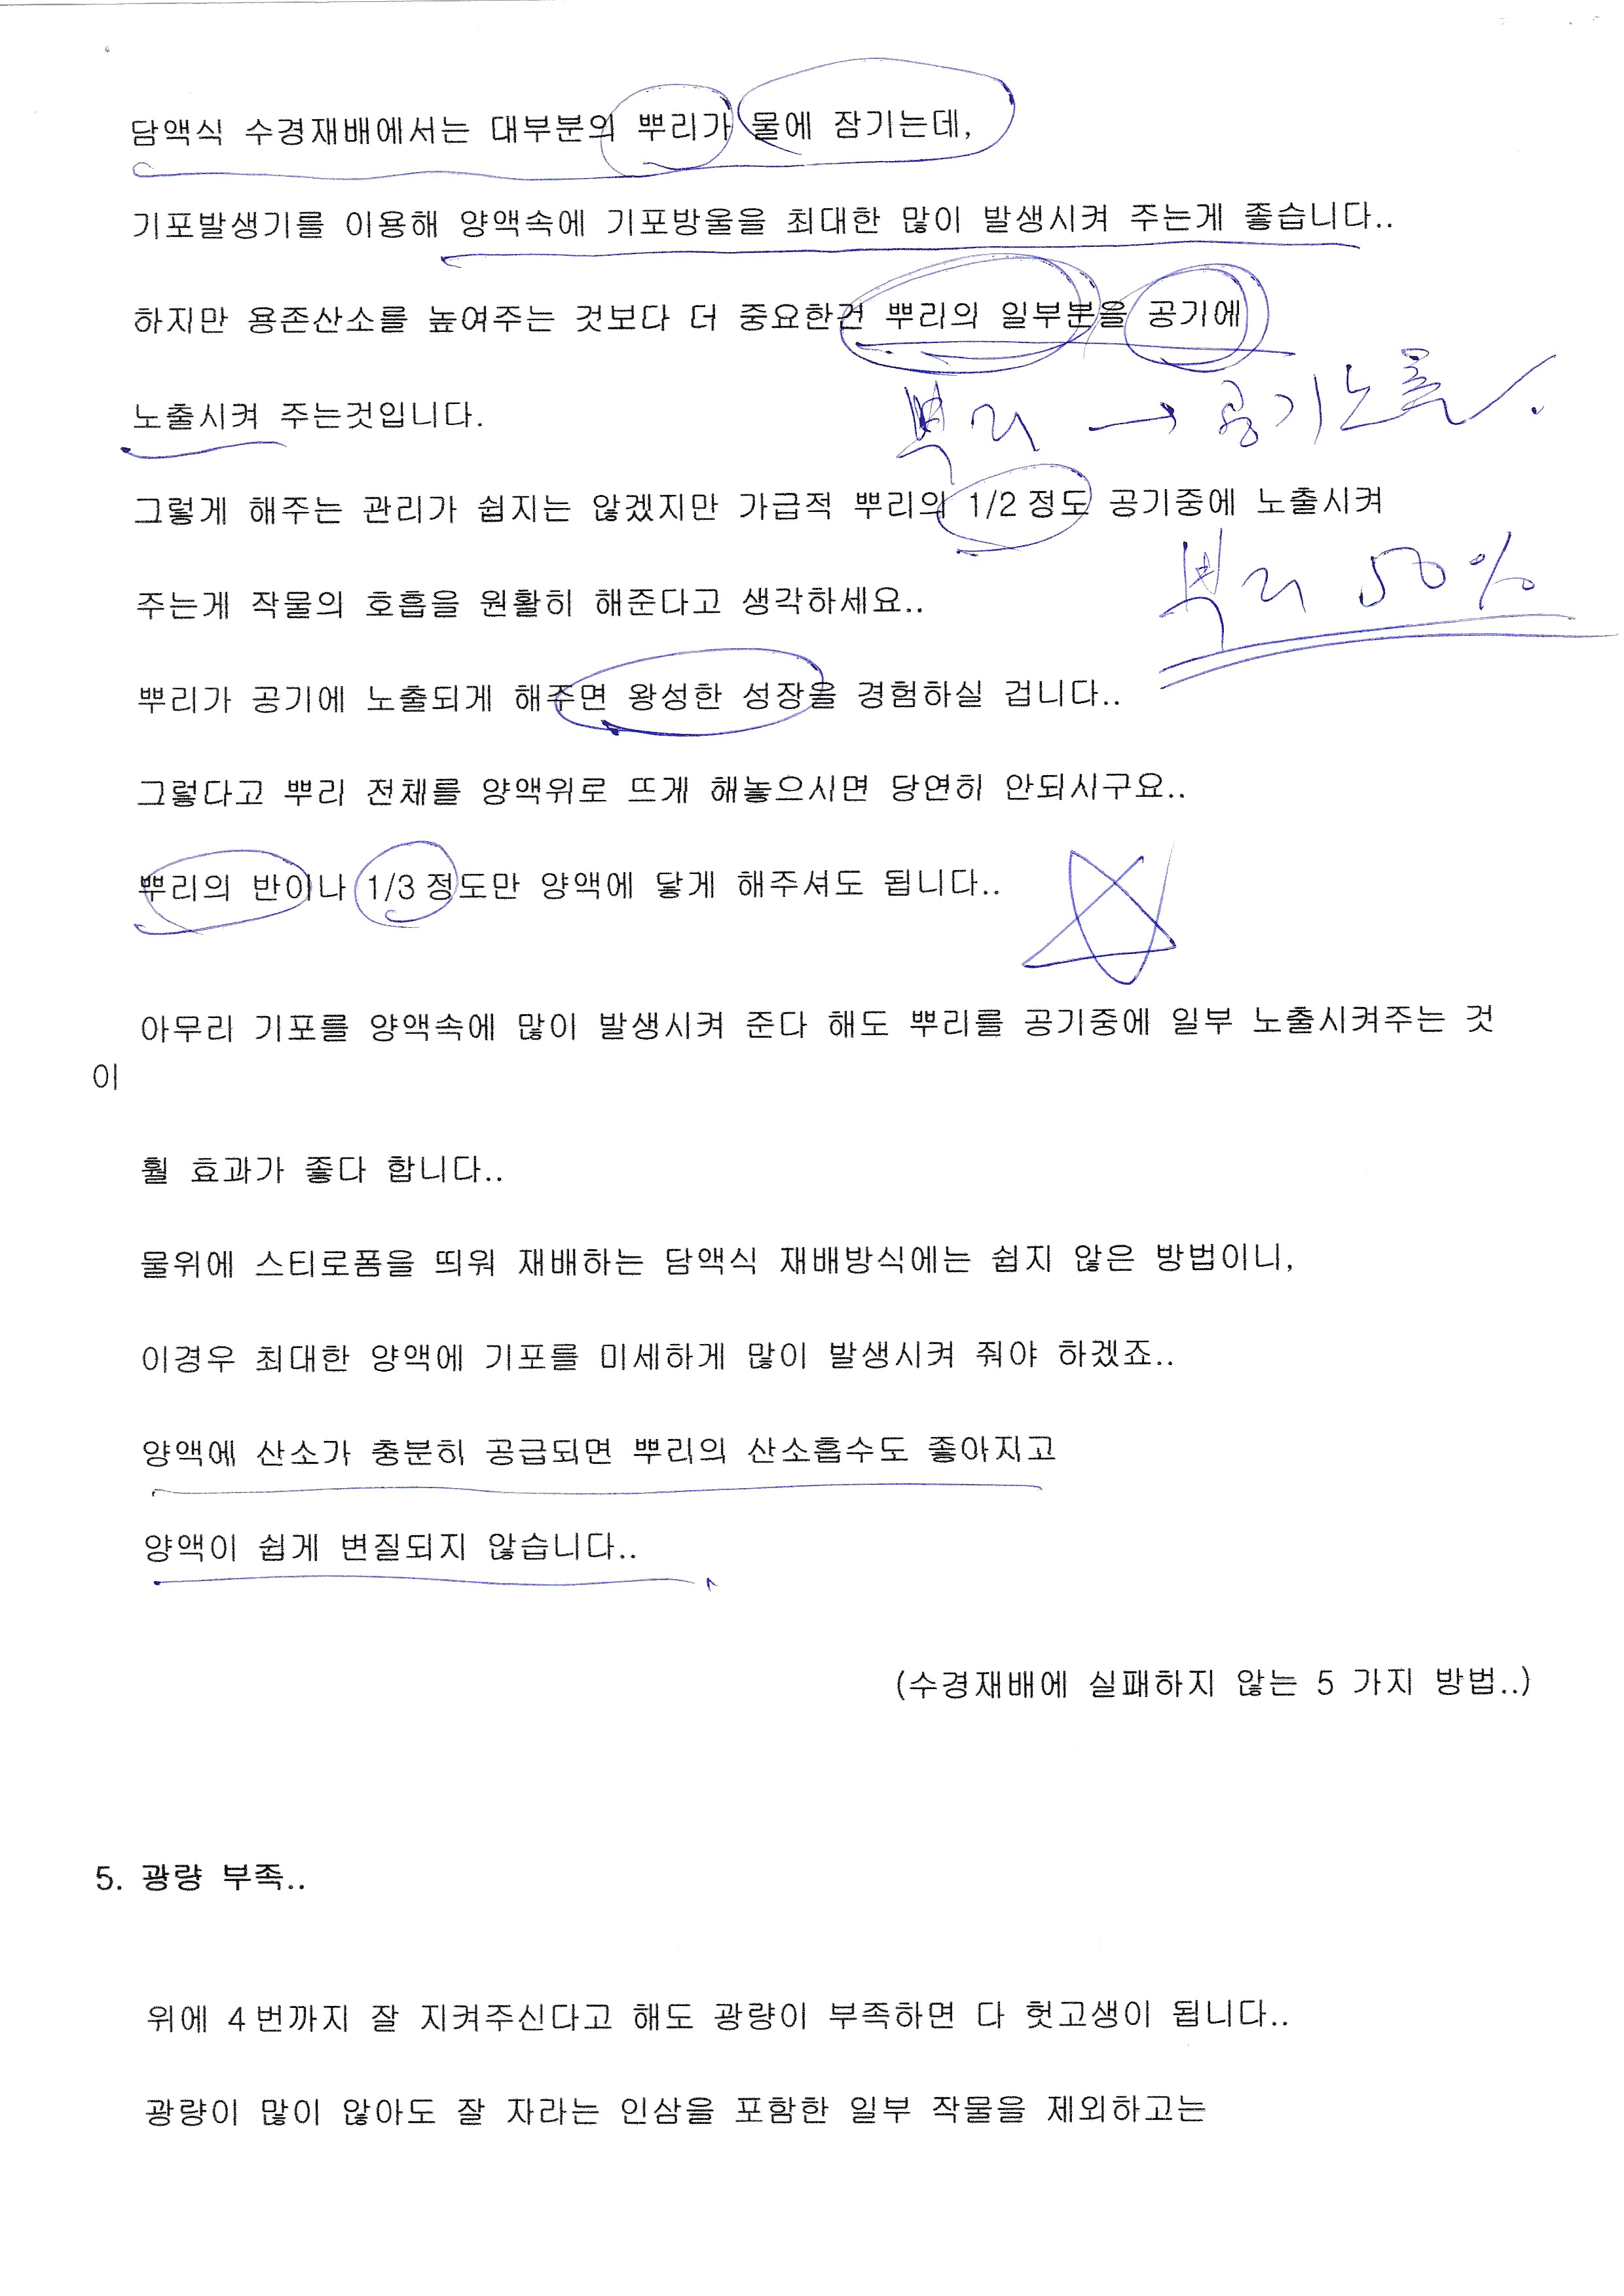 담액식 수경재배에서는 대부분의 뿌리가 물에 잠기는데,
기포발생기를 이용해 양액속에 기포방울을 최대한 많이 발생시켜 주는게 좋습니다..
하지만 용존산소를 높여주는 것보다 더 중요한건 뿌리의 일부분을 공기에
뿌리 → 공기노출
노출시켜 주는것입니다.
그렇게 해주는 관리가 쉽지는 않겠지만 가급적 뿌리의 1/2 정도 공기중에 노출시켜
뿌리 50%
주는게 작물의 호흡을 원활히 해준다고 생각하세요..
뿌리가 공기에 노출되게 해주면 왕성한 성장을 경험하실 겁니다..
그렇다고 뿌리 전체를 양액위로 뜨게 해놓으시면 당연히 안되시구요..
뿌리의 반이나 1/3 정도만 양액에 닿게 해주셔도 됩니다..
아무리 기포를 양액속에 많이 발생시켜 준다 해도 뿌리를 공기중에 일부 노출시켜주는 것
이
훨 효과가 좋다 합니다..
물위에 스티로폼을 띄워 재배하는 담액식 재배방식에는 쉽지 않은 방법이니,
이경우 최대한 양액에 기포를 미세하게 많이 발생시켜 줘야 하겠죠..
양액에 산소가 충분히 공급되면 뿌리의 산소흡수도 좋아지고
양액이 쉽게 변질되지 않습니다..
(수경재배에 실패하지 않는 5 가지 방법..)
5. 광량 부족..
위에 4번까지 잘 지켜주신다고 해도 광량이 부족하면 다 헛고생이 됩니다..
광량이 많이 않아도 잘 자라는 인삼을 포함한 일부 작물을 제외하고는